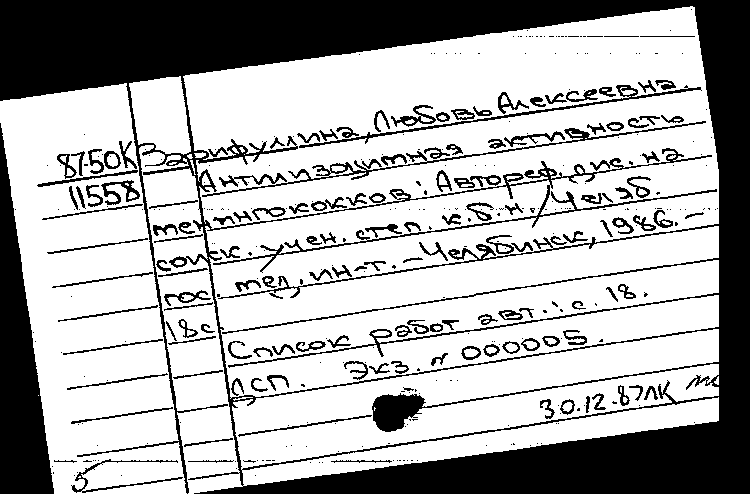 8750К Зарифуллина, Любовь Алексеевна.
11558 Антилизоцимная активность
менингококков: Автореф. дис. на
соиск. учен. степ. к.б.н. / Челяб.
гос. мед. ин-т. - Челябинск, 1986. -
18с.
Список работ авт.: с. 18.
ДСП. Экз. № 000005.
30.12.87ЛК
5